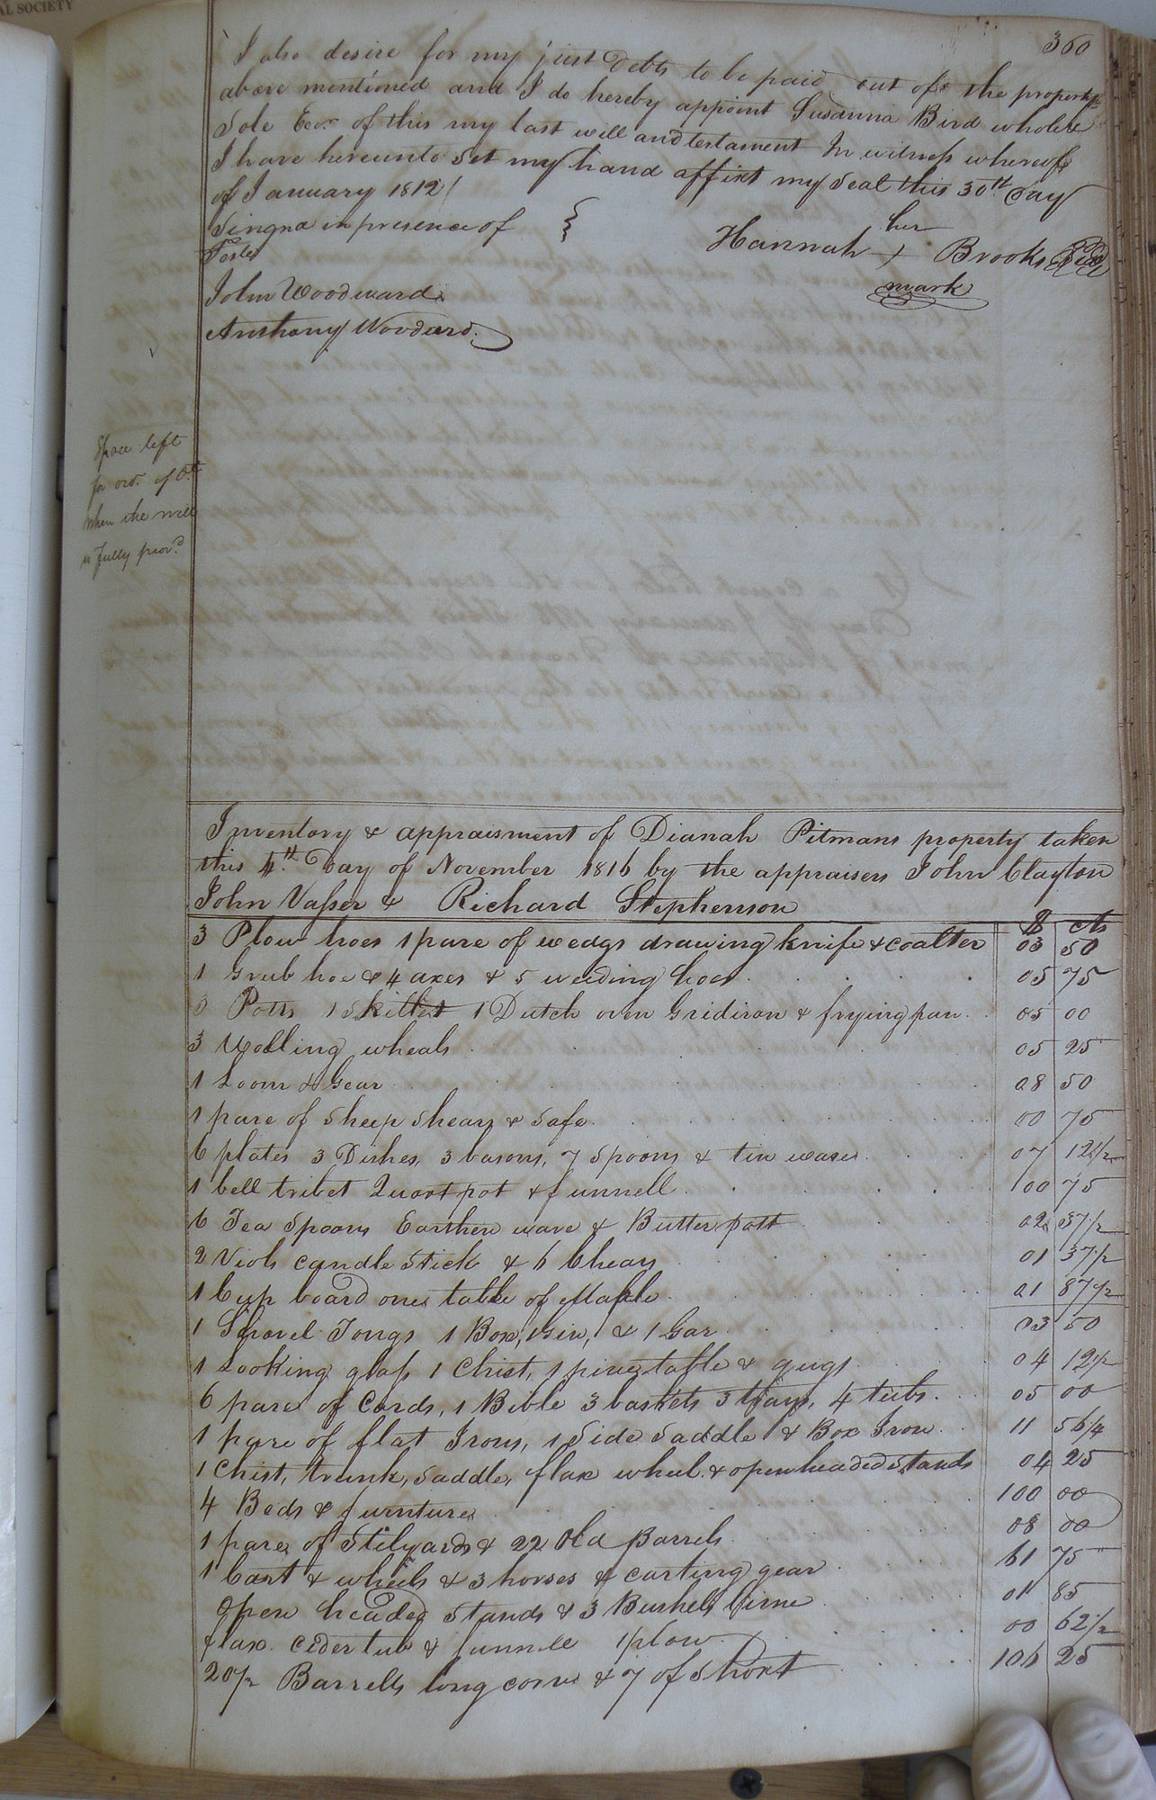 AL SOCIETY
360
I also desire for my just Debts to be paid out of the property
above mentioned and I do hereby appoint Susanna Bird whole &
Sole Exr. of this my last will and testament In witness whereof
I have hereunto Set my hand affixt my Seal this 30th Day
of January 1812
Singna in presence of
Teste
her
Hannah + Brooks Seal
mark
John Woodward
Anthony Woodard
Space left
for ord. of Ct.
when the will
is fully prov.d
Inventory & appraisment of Dianah Pitmans property taken
this 4th Day of November 1816 by the appraisers John Clayton
John Vasser & Richard Stephenson
$ cts
3 Plow hoes 1 pare of wedgs drawing knife & coalter 03 50
1 Grub hoe & 4 axes & 5 weeding hoes 05 75
3 Potts 1 Skillet 1 Dutch oven Gridiron & frying pan 05 00
3 Wolling wheals 05 25
1 Loom & Gear 08 50
1 pare of Sheep Shears & Safe 00 75
6 plates 3 Dishes, 3 basons, 7 Spoons & tin wares 07 12 1/2
1 bell tribet Quart pot & funnell 00 75
6 Tea Spoons Earthen ware & Butter pott 02 37 1/2
2 Viols candle Stick & 6 Chears 01 37 1/2
1 Cup board one table of Maple 01 87 1/2
1 Shovel Tongs 1 Box, 1 Gin, & 1 Gar 03 50
1 Looking glass 1 Chist, 1 pine table & gugs 04 12 1/2
6 pare of Cards, 1 Bible 3 baskets 3 trays, 4 tubs 05 00
1 pare of flat Irons, 1 Side Saddle & Box Iron 11 56 1/4
1 Chist, trunk, Saddle, flax wheel & open headed Stands 04 25
4 Beds & furniture 100 00
1 pare of Stilyards & 22 Old Barrels 08 00
1 Cart & wheels & 3 horses & carting gear 61 75
Open headed Stands & 3 Bushels 01 85
flax Ceder tub & funnell 1 plow 00 62 1/2
20 1/2 Barrells long corn & 7 of Short 106 25